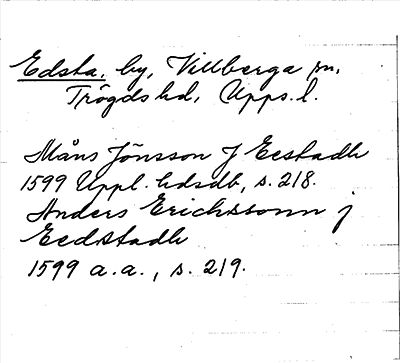 Edsta, by, Villberga sn,
Trögds hd, Upps. l.
Måns Jönsson J Eestadh
1599 Uppl. hdsdb, s. 218.
Anders Erichssonn j
Eedstadh
1599 a.a., s. 219.